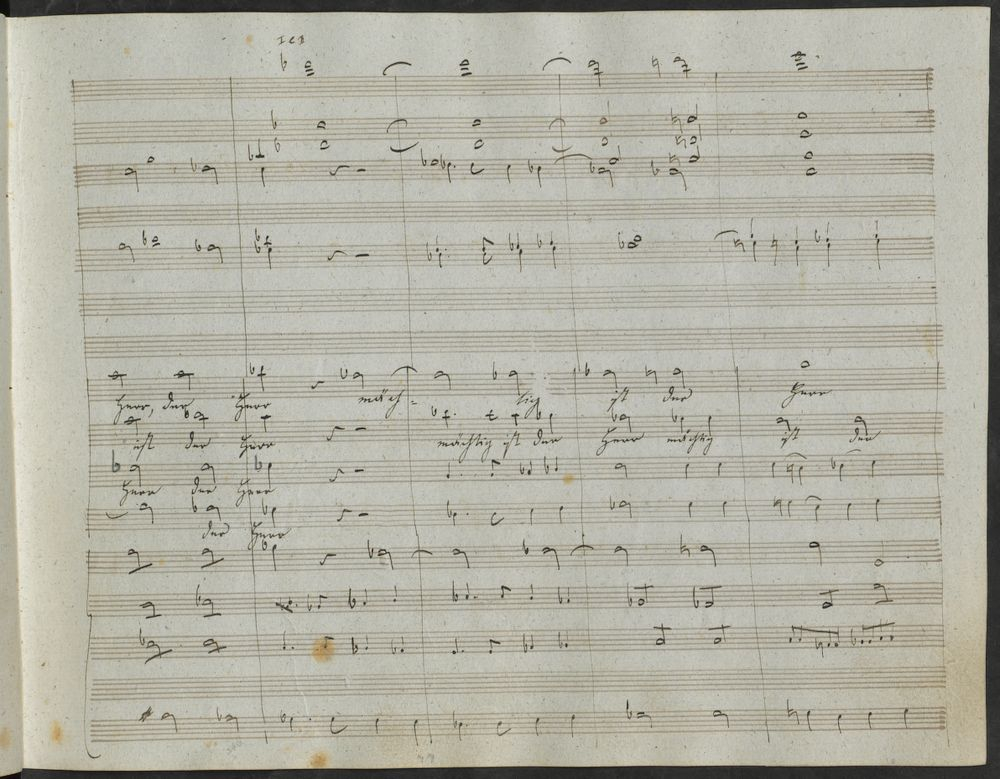 Herr, der Herr mäch- tig ist der Herr
ist der Herr mächtig ist der Herr mächtig ist der
Herr der Herr
der Herr